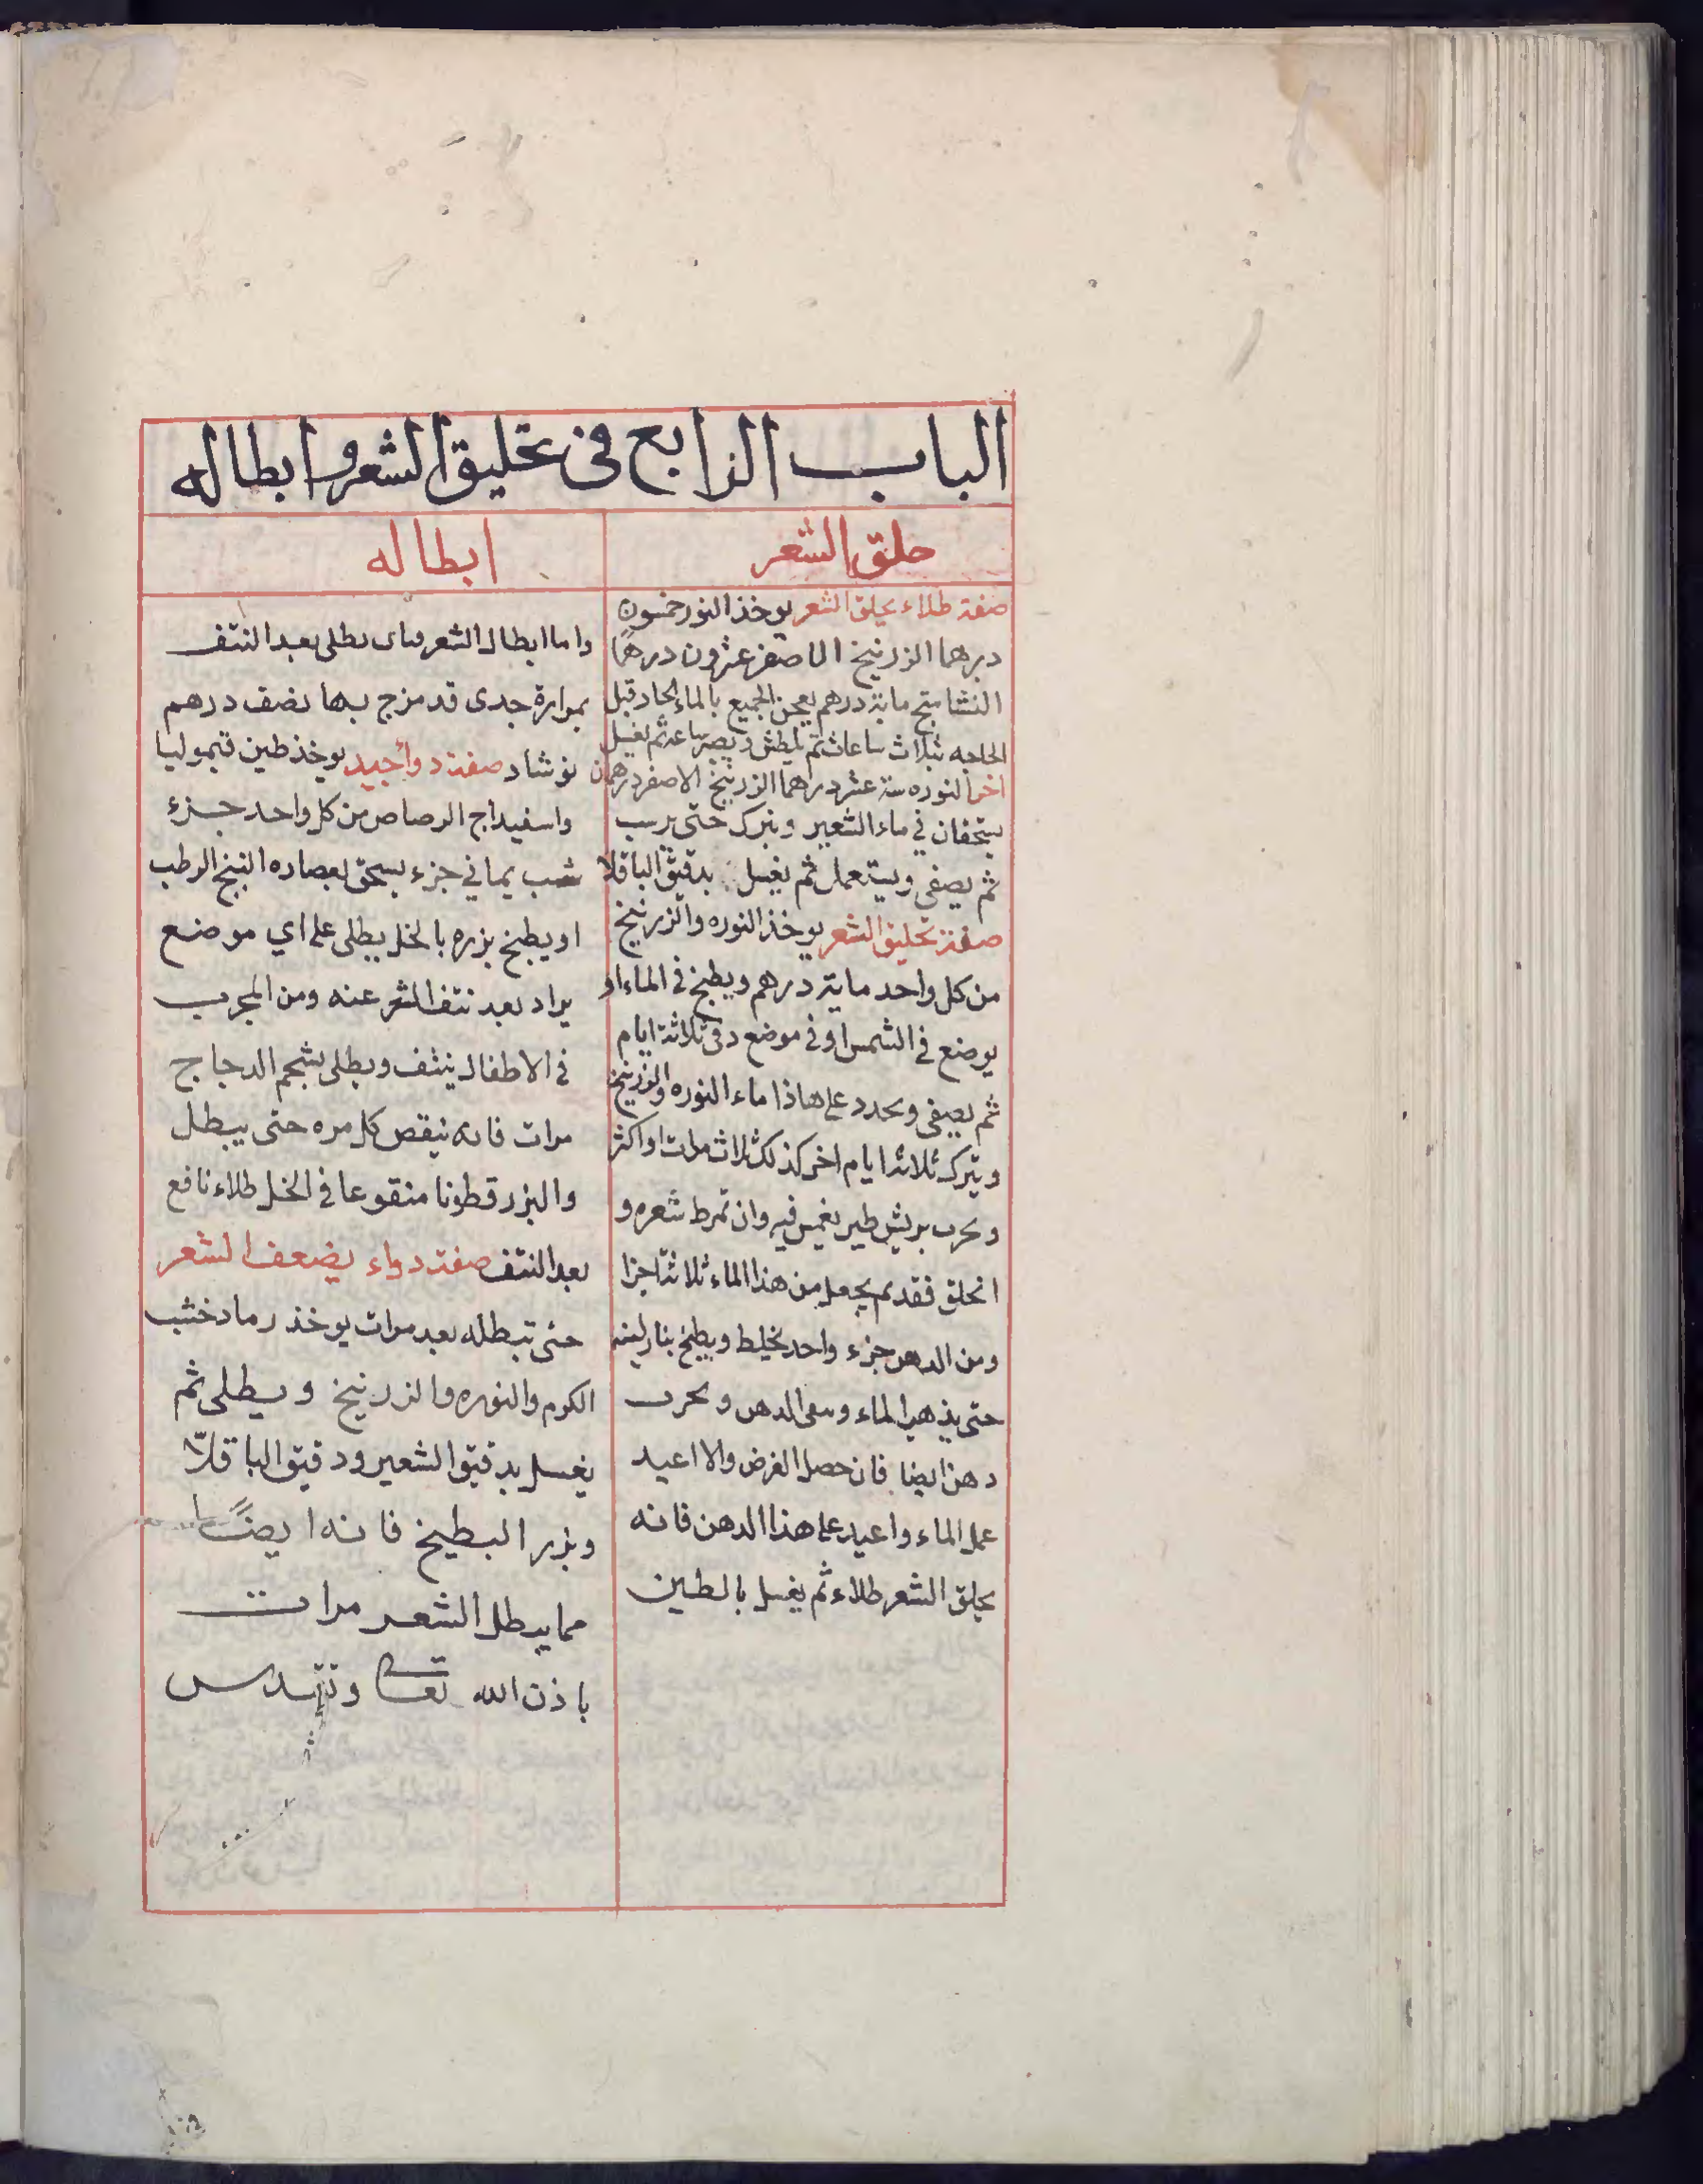 الباب الرابع في تحليق الشعر وابطاله
حلق الشعر
صفة طلاء يحلق الشعر يوخذ النوره خمسون
درهما الزرنيخ الاصفر عشرون درهمًا
النشاستج ماية درهم يعجن الجميع بالماء الحار قبل
الحاجه بثلاث ساعات ثم يلطش ويصبر ساعه ثم يغسل
اخر النوره ستة عشر درهما الزرنيخ الاصفر درهمان
يسحقان في ماء الشعير ويترك حتى يرسب
ثم يصفى ويستعمل ثم يغسل بدقيق الباقلا
صفة تحليق الشعر يوخذ النوره والزرنيخ
من كل واحد ماية درهم ويطبخ في الماء او
يوضع في الشمس او في موضع دفي ثلاثة ايام
ثم يصفى ويجدد على هاذا ماء النوره والزرنيخ
ويترك ثلاثة ايام اخر كذلك ثلاث مرات او اكثر
ويجرب بريش طير يغمس فيه وان تمرط شعره و
انحلق فقد تم يجعل من هذا الماء ثلاثة اجزا
ومن الدهن جزء واحد يخلط ويطبخ بنار لينه
حتى يذهب الماء ويبقى الدهن ويجرب
دهن ايضا فان حصل الغرض والا اعيد
عمل الماء واعيد على هذا الدهن فانه
يحلق الشعر طلاء ثم يغسل بالطين
ابطاله
واما ابطال الشعر فبان يطلى بعد النتف
بمرارة جدى قد مزج بها نصف درهم
نوشادر صفة دواء جيد يوخذ طين قيموليا
واسفيداج الرصاص من كل واحد جزء
شب يماني جزء يسحق بعصاره البنج الرطب
او يطبخ بزره بالخل يطلى على اي موضع
يراد بعد نتف الشعر عنه ومن المجرب
في الاطفال ينتف ويطلى بشحم الدجاج
مرات فانه ينقص كل مره حتى يبطل
والبزر قطونا منقوعا في الخل طلاء نافع
بعد النتف صفة دواء يضعف الشعر
حتى تبطله بعد مرات يوخذ رماد خشب
الكرم والنوره والزرنيخ ويطلى ثم
يغسل بدقيق الشعير ودقيق الباقلّا
وبزر البطيخ فانه ايضًا
مما يبطل الشعر مرات
باذن الله تعالى وتقدس